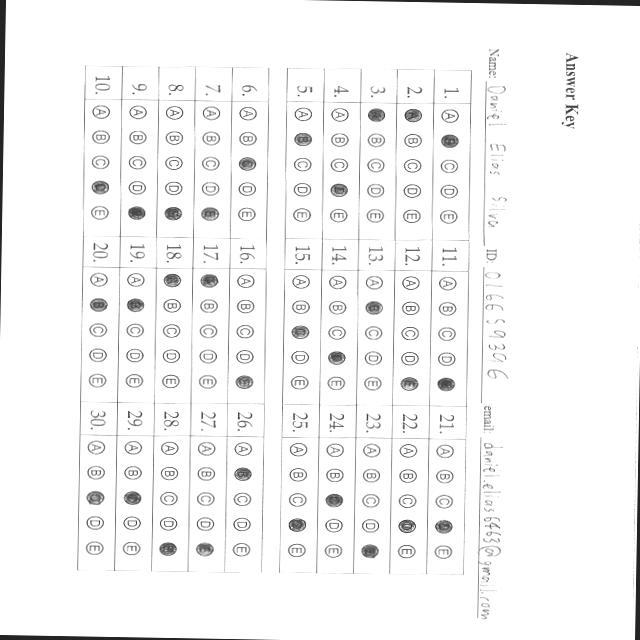 Answer Key
Name: Daniel Elias Silva ID: 016659396 email: daniel.elias6463@gmail.com
1. A B C D E 11. A B C D E 21. A B C D E
2. A B C D E 12. A B C D E 22. A B C D E
3. A B C D E 13. A B C D E 23. A B C D E
4. A B C D E 14. A B C D E 24. A B C D E
5. A B C D E 15. A B C D E 25. A B C D E
6. A B C D E 16. A B C D E 26. A B C D E
7. A B C D E 17. A B C D E 27. A B C D E
8. A B C D E 18. A B C D E 28. A B C D E
9. A B C D E 19. A B C D E 29. A B C D E
10. A B C D E 20. A B C D E 30. A B C D E